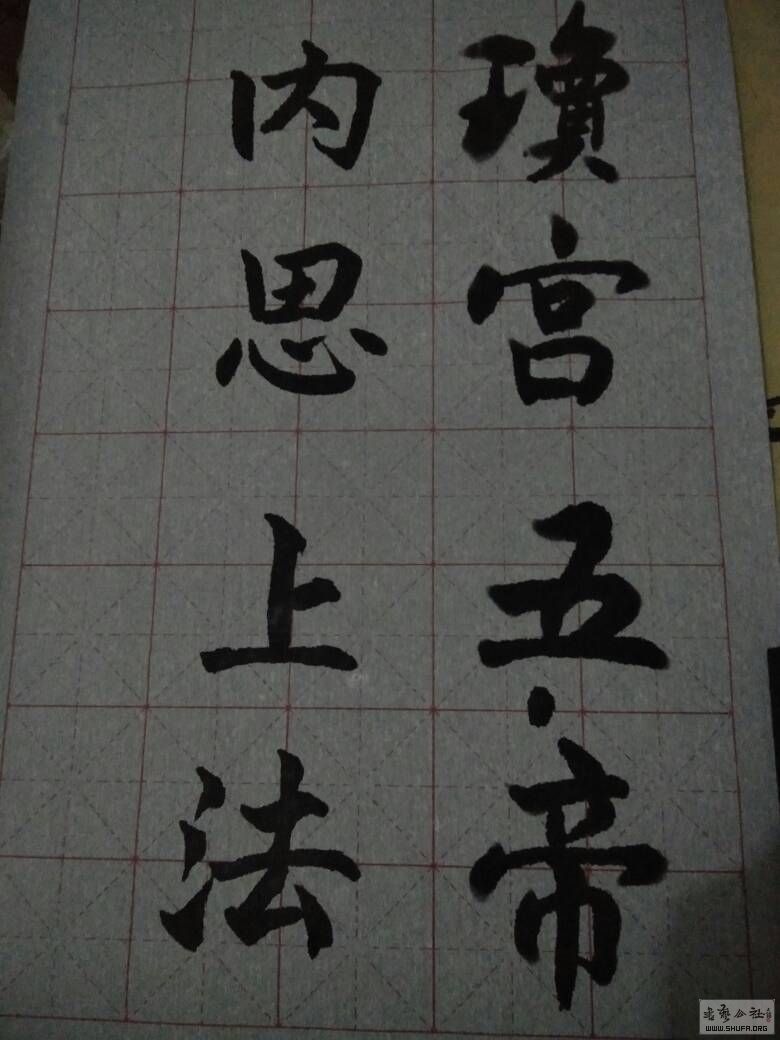 瓊宫五帝
内思上法
书艺公社
WWW.SHUFA.ORG